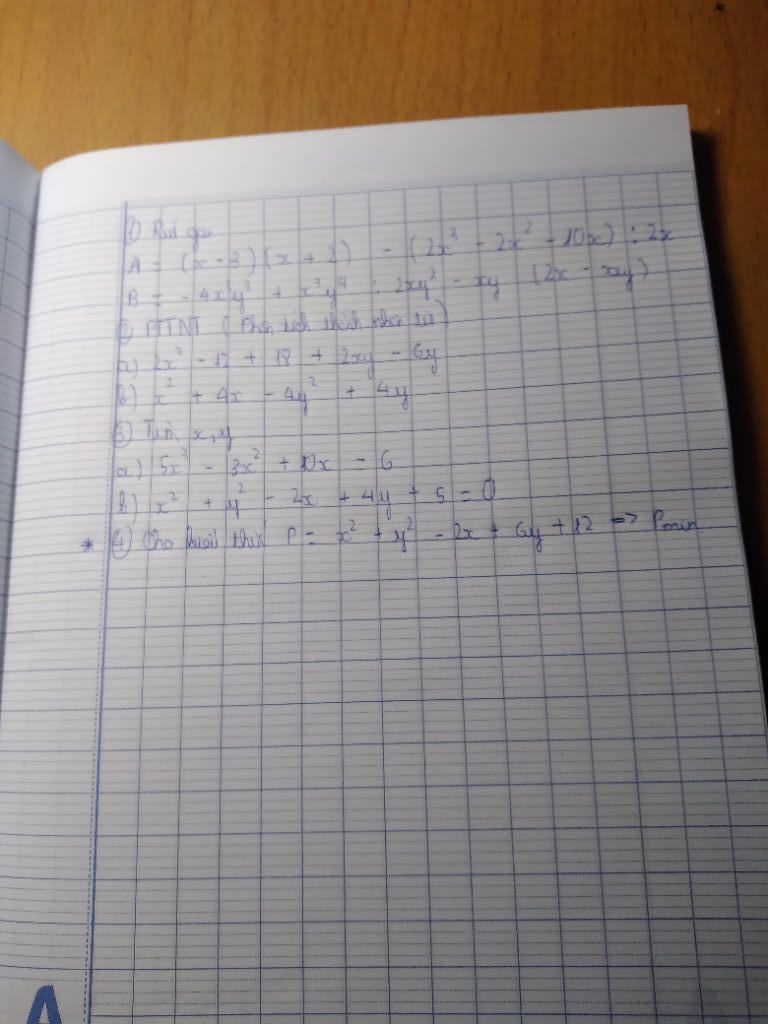 ① Rút gọn
A = (x - 3)(x + 2) - (2x³ - 2x² - 10x) : 2x
B = - 4x³y³ + x³y⁴ : 2xy² - xy (2x - xy)
② PTTNT (Phân tích thành nhân tử)
a) 2x² - 12 + 18 + 2xy - 6y
b) x² + 4x - 4y² + 4y
③ Tìm x, y
a) 5x³ - 3x² + 10x = 6
b) x² + y² - 2x + 4y + 5 = 0
* ④ Cho biểu thức P = x² + y² - 2x + 6y + 12 => Pmin
A